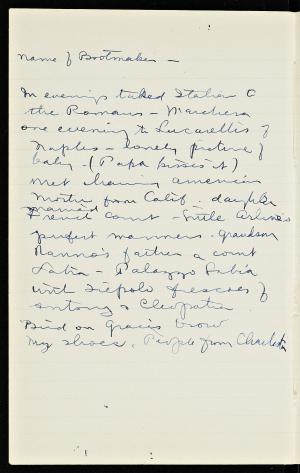 name of Bootmaker —
In evenings talked Italian to
the Romans — Marchesa
one evening to Lucarellis of
Naples — lovely picture of
baby. (Papa kisses it)
met charming american
mother from Calif. daughter
married
French Count — little Arline's
perfect manners. grandson
Nanno's father a count
Labia — Palazzo Labia
with Tiepolo frescoes of
Antony & Cleopatra
Bird on Gracie's brow
My shoes. People from Charleston